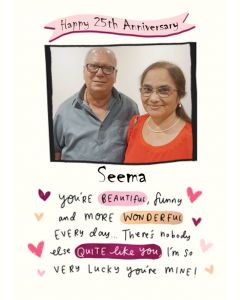 Happy 25th Anniversary
Seema
you're BEAUTIFUL, funny
and MORE WONDERFUL
EVERY day... There's nobody
else QUITE like you I'm so
VERY Lucky you're MINE!